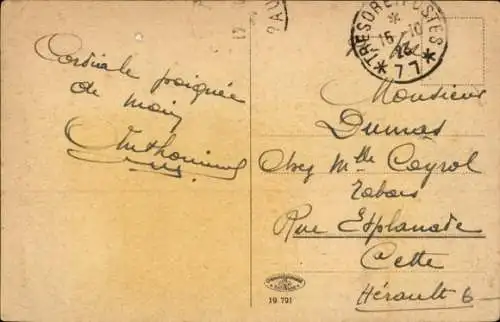 Cordiale poignée
de main
TRESOR ET POSTES
*
15-10
23
* 77 *
Monsieur
Dumas
Chez Mlle Cayrol
Tabacs
Rue Esplanade
Cette
Hérault
19 791